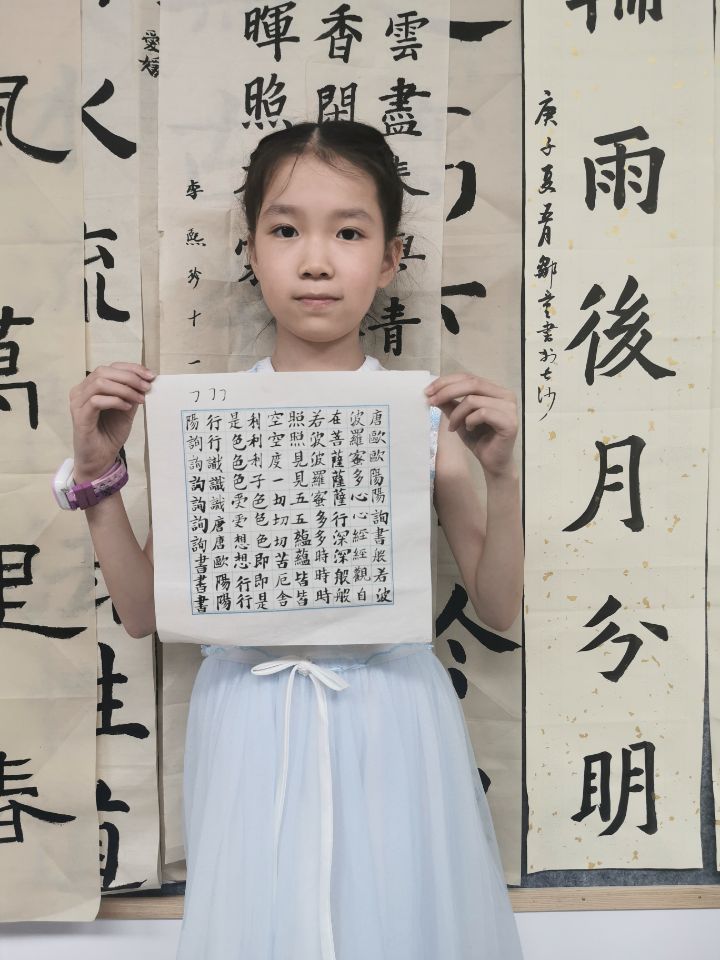 雨後月分明
庚子夏
書於長沙
雲盡
青
香閑
暉照
李熙珍十一
唐歐歐陽陽詢書般若波
波羅蜜多心心經經觀自
在菩薩薩薩行深深般般
若波波羅蜜多多時時時
照照見見五五蘊蘊皆皆
空空度一切切切苦厄舍
利利利子色色色即即是
是色色色受受想想行行
行行識識識唐唐歐陽陽
陽詢詢詢詢詢詢書書書
流
風萬里春